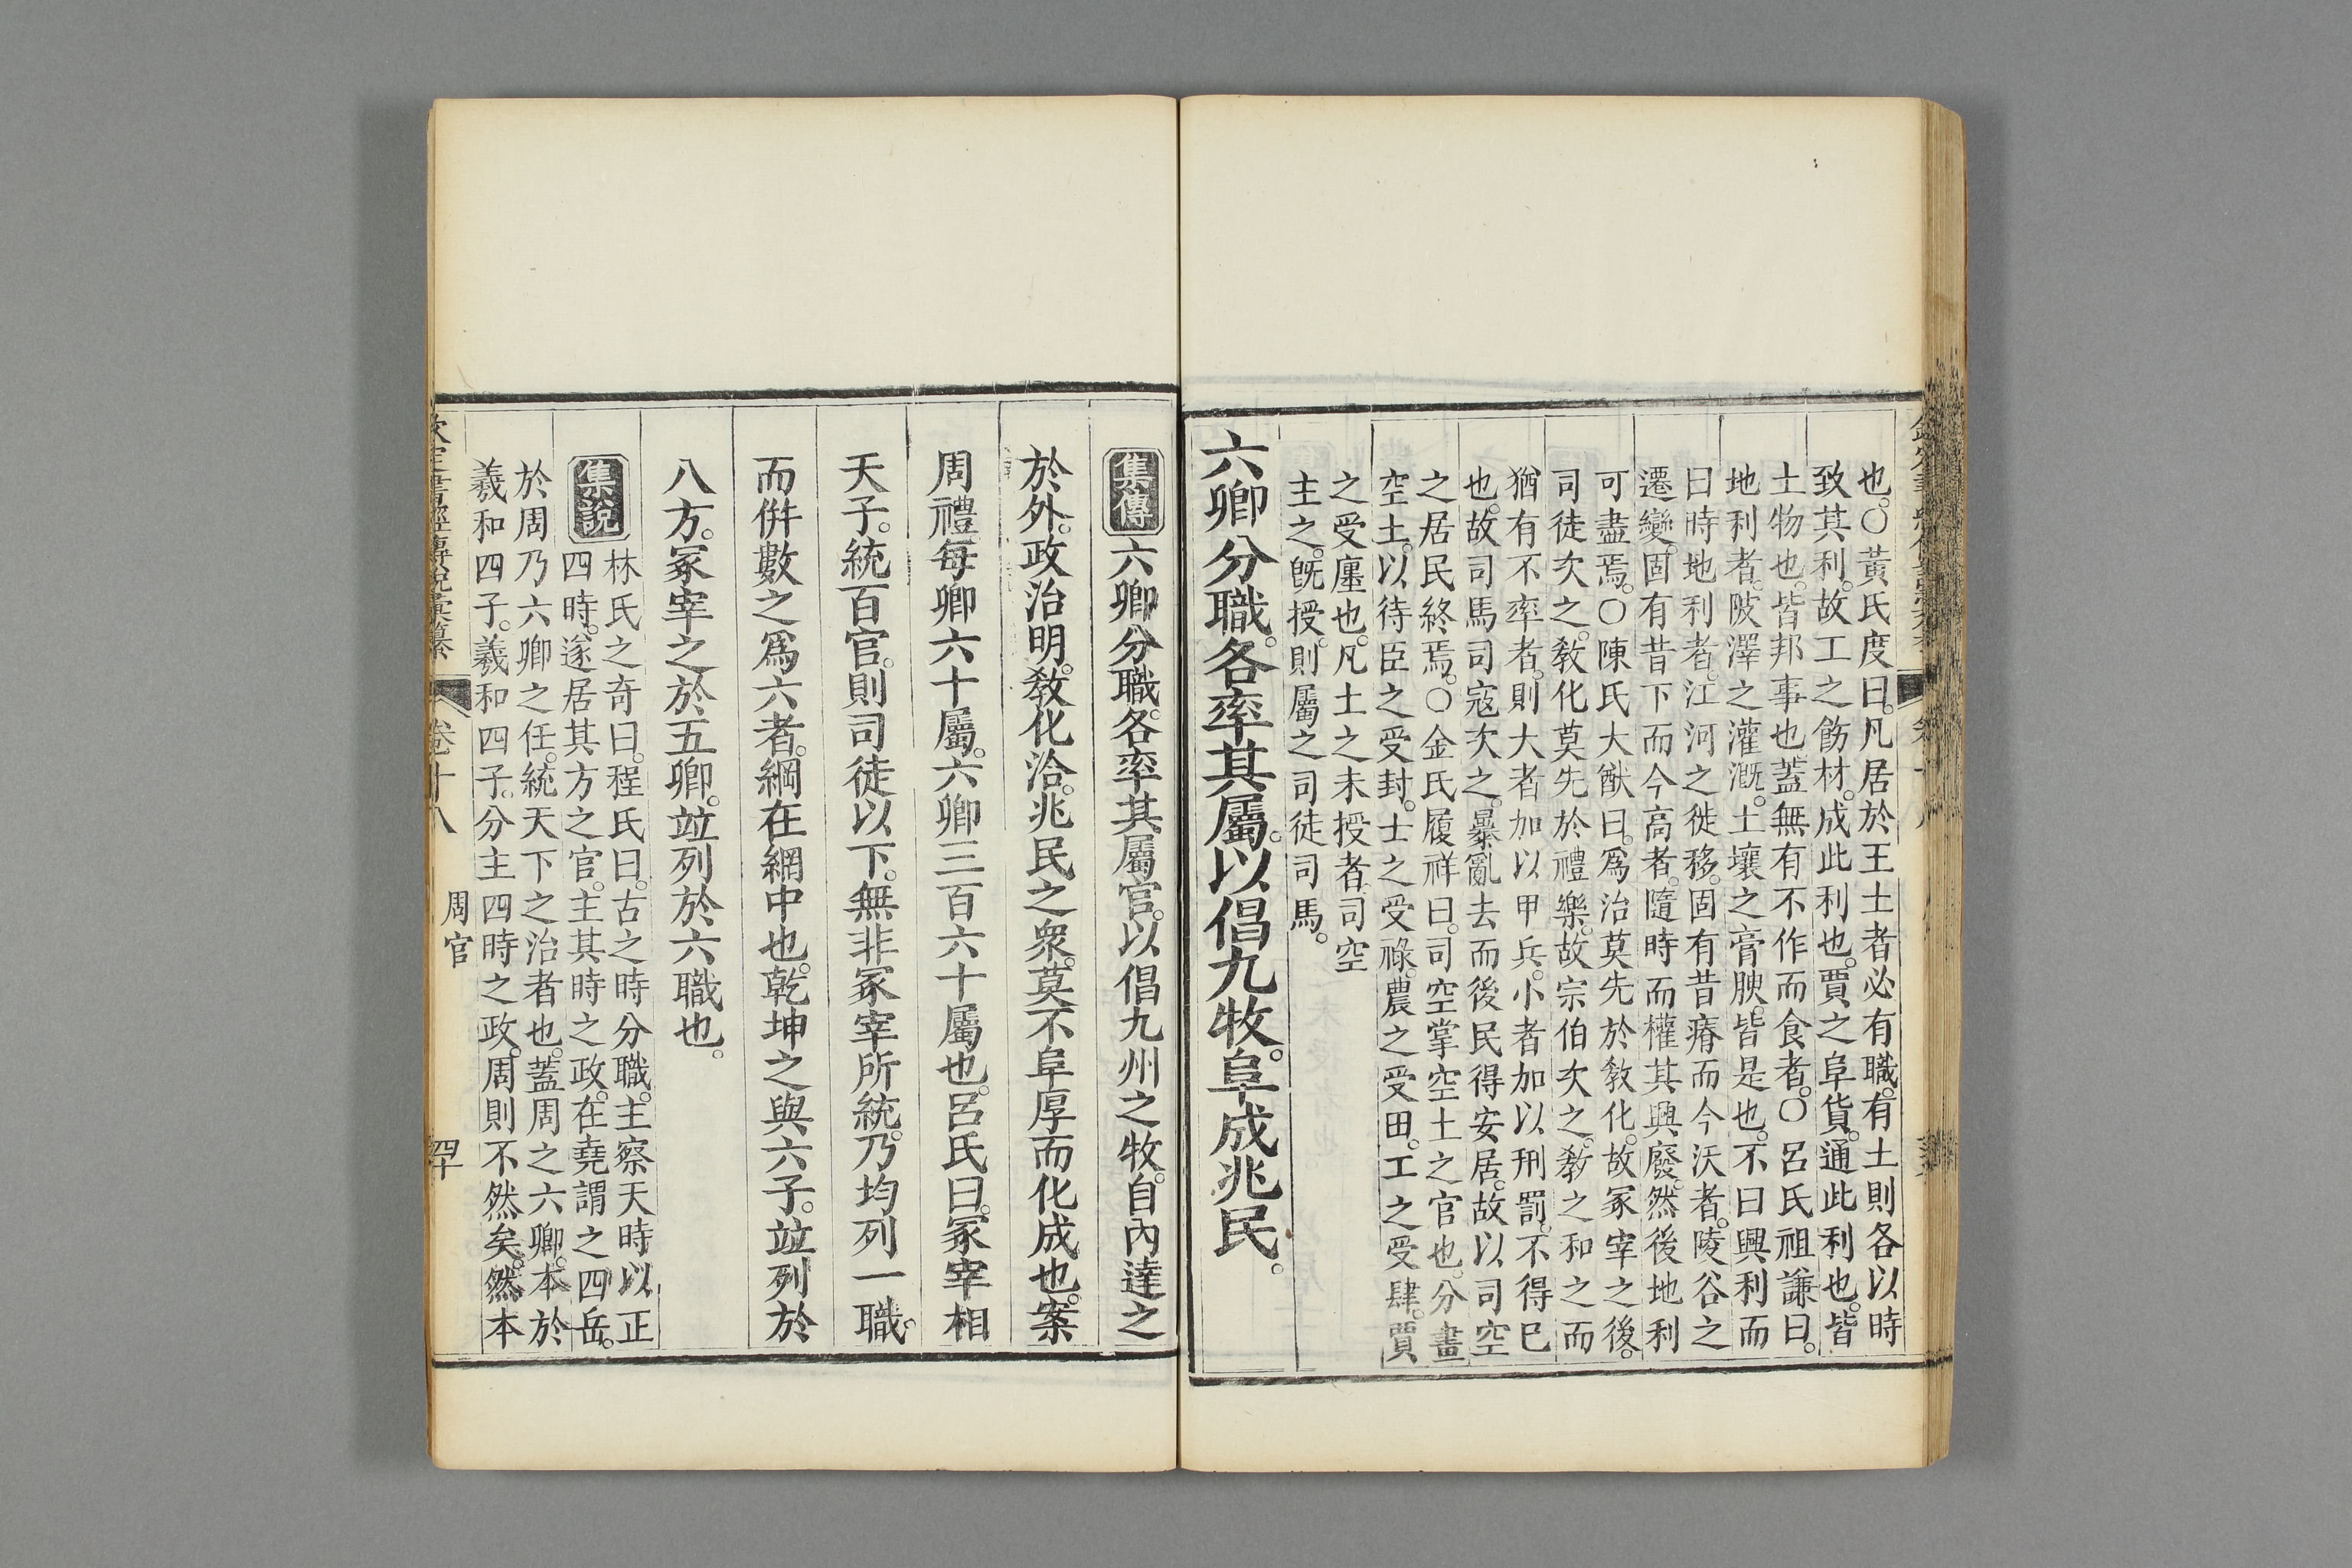 也。○黃氏度曰。凡居於王土者必有職。有土則各以時
致其利。故工之飭材。成此利也。賈之阜貨。通此利也。皆
土物也。皆邦事也。蓋無有不作而食者。○呂氏祖謙曰。
地利者。陂澤之灌溉。土壤之膏腴。皆是也。不曰興利而
曰時地利者。江河之徙移。固有昔瘠而今沃者。陵谷之
遷變。固有昔下而今高者。隨時而權其興廢。然後地利
可盡焉。○陳氏大猷曰。爲治莫先於敎化。故冢宰之後。
司徒次之。敎化莫先於禮樂。故宗伯次之。敎之和之而
猶有不率者。則大者加以甲兵。小者加以刑罰。不得已
也。故司馬司寇次之。暴亂去而後民得安居。故以司空
之居民終焉。○金氏履祥曰。司空掌空土之官也。分畫
空土。以待臣之受封。士之受祿。農之受田。工之受肆。賈
之受廛也。凡土之未授者。司空
主之。旣授。則屬之司徒司馬。
六卿分職。各率其屬。以倡九牧。阜成兆民。
集傳 六卿分職。各率其屬官。以倡九州之牧。自內達之
於外。政治明。敎化洽。兆民之衆。莫不阜厚而化成也。案
周禮每卿六十屬。六卿三百六十屬也。呂氏曰。冢宰相
天子。統百官。則司徒以下。無非冢宰所統。乃均列一職。
而倂數之爲六者。綱在網中也。乾坤之與六子。竝列於
八方。冢宰之於五卿。竝列於六職也。
集說 林氏之奇曰。程氏曰。古之時分職。主察天時以正
四時。遂居其方之官。主其時之政。在堯謂之四岳。
於周乃六卿之任。統天下之治者也。蓋周之六卿。本於
羲和四子。羲和四子。分主四時之政。周則不然矣。然本
欽定書經傳說彙纂 卷十八 周官 四十